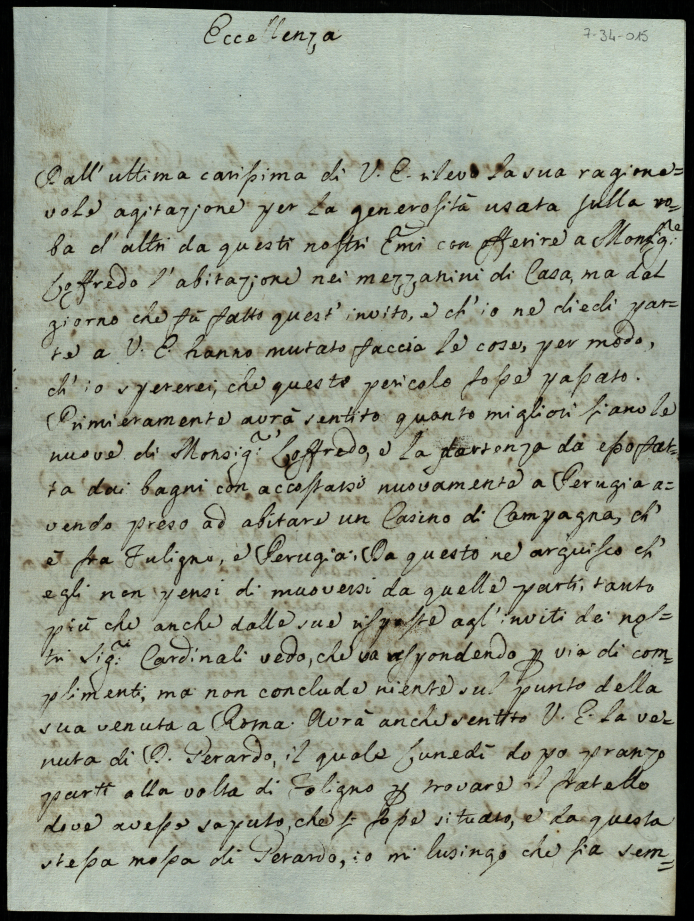 Eccellenza
7-34-015
Dall' ultima carissima di V. E. rilevo la sua ragione=
vole agitazione per la generosità usata sulla ro=
ba d'altri da questi nostri Emi con offerire a Monsig.re
Loffredo l'abitazione nei mezzanini di Casa, ma dal
giorno che fù fatto quest' invito, e ch' io ne diedi par=
te a V. E. hanno mutato faccia le cose, per modo,
ch' io spererei, che questo pericolo fosse passato.
Primieramente avrà sentito quanto migliori siano le
nuove di Monsig.r Loffredo, e la partenza da esso fat=
ta dai bagni con accostarsi nuovamente a Perugia a=
vendo preso ad abitare un Casino di Campagna, ch'
è fra Fuligno, e Perugia. Da questo ne arguisco ch'
egli non pensi di muoversi da quelle parti, tanto
più che anche dalle sue risposte agl' inviti dei nos=
tri Sig.ri Cardinali vedo, che va rispondendo p via di com=
plimenti, ma non conclude niente sul punto della
sua venuta a Roma. Avrà anche sentito V. E. la ve=
nuta di D. Gerardo, il quale Lunedì dopo pranzo
partì alla volta di Foligno p trovare il fratello
dove avesse saputo, che si fosse situato, e da questa
stessa mossa di Gerardo, io mi lusingo che sia sem=